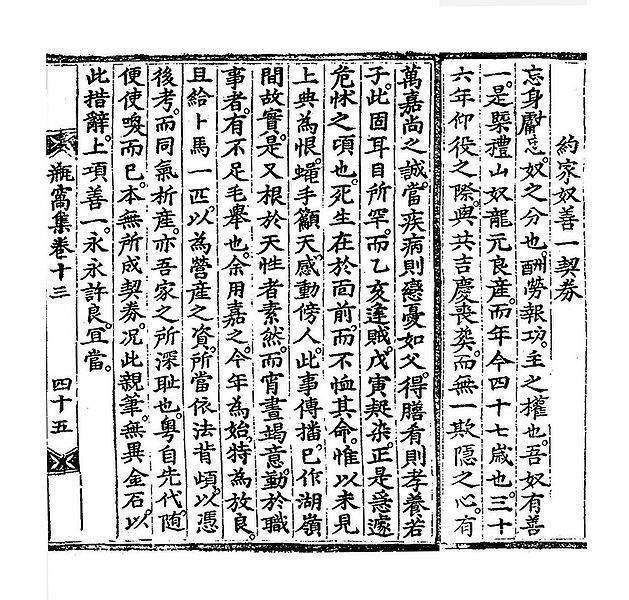 約家奴善一契券
忘身勵忠。奴之分也。酬勞報功。主之權也。吾奴有善
一。是槩禮山奴龍元良産。而年今四十七歲也。三十
六年仰役之際。與共吉慶喪葬。而無一欺隱之心。有
萬嘉尚之誠。當疾病則戀憂如父。得膳肴則孝養若
子。此固耳目所罕。而乙亥逢賊。戊寅染正是急遽
危怵之頃也。死生在於面前。而不恤其命。惟以未見
上典為恨。手籲天。感動傍人。此事傳播。已作湖嶺
間故實。是又根於天性者素然。而宵晝竭意。勤於職
事者。有不足毛擧也。余用嘉之。今年為始。特為放良。
且給卜馬一匹。以為營産之資。所當依法背頉。以憑
後考。而同氣析産。亦吾家之所深耻也。粤自先代。随
便使喚而已。本無所成契券。况此親筆。無異金石。以
此措辭。上項善一。永永許良。宜當。
瓶窩集卷十三
四十五